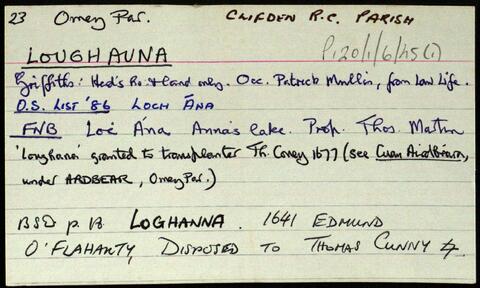 23 Omey Par. CLIFDEN R.C. PARISH
LOUGHAUNA P.120/1/6/45(i)
Griffiths: Herd's ho. & land only. Occ. Patrick Mullin, from Law Life.
O.S. LIST '86 LOCH ÁNA
FNB Loċ Ána Anna's lake. Prop. Thos. Martin
'Loughana' granted to transplanter Th. Coney 1677 (see
under ARDBEAR, Omey Par.)
BSD p. LOGHANNA. 1641 EDMUND
O'FLAHARTY, DISPOSED TO THOMAS CUNNY